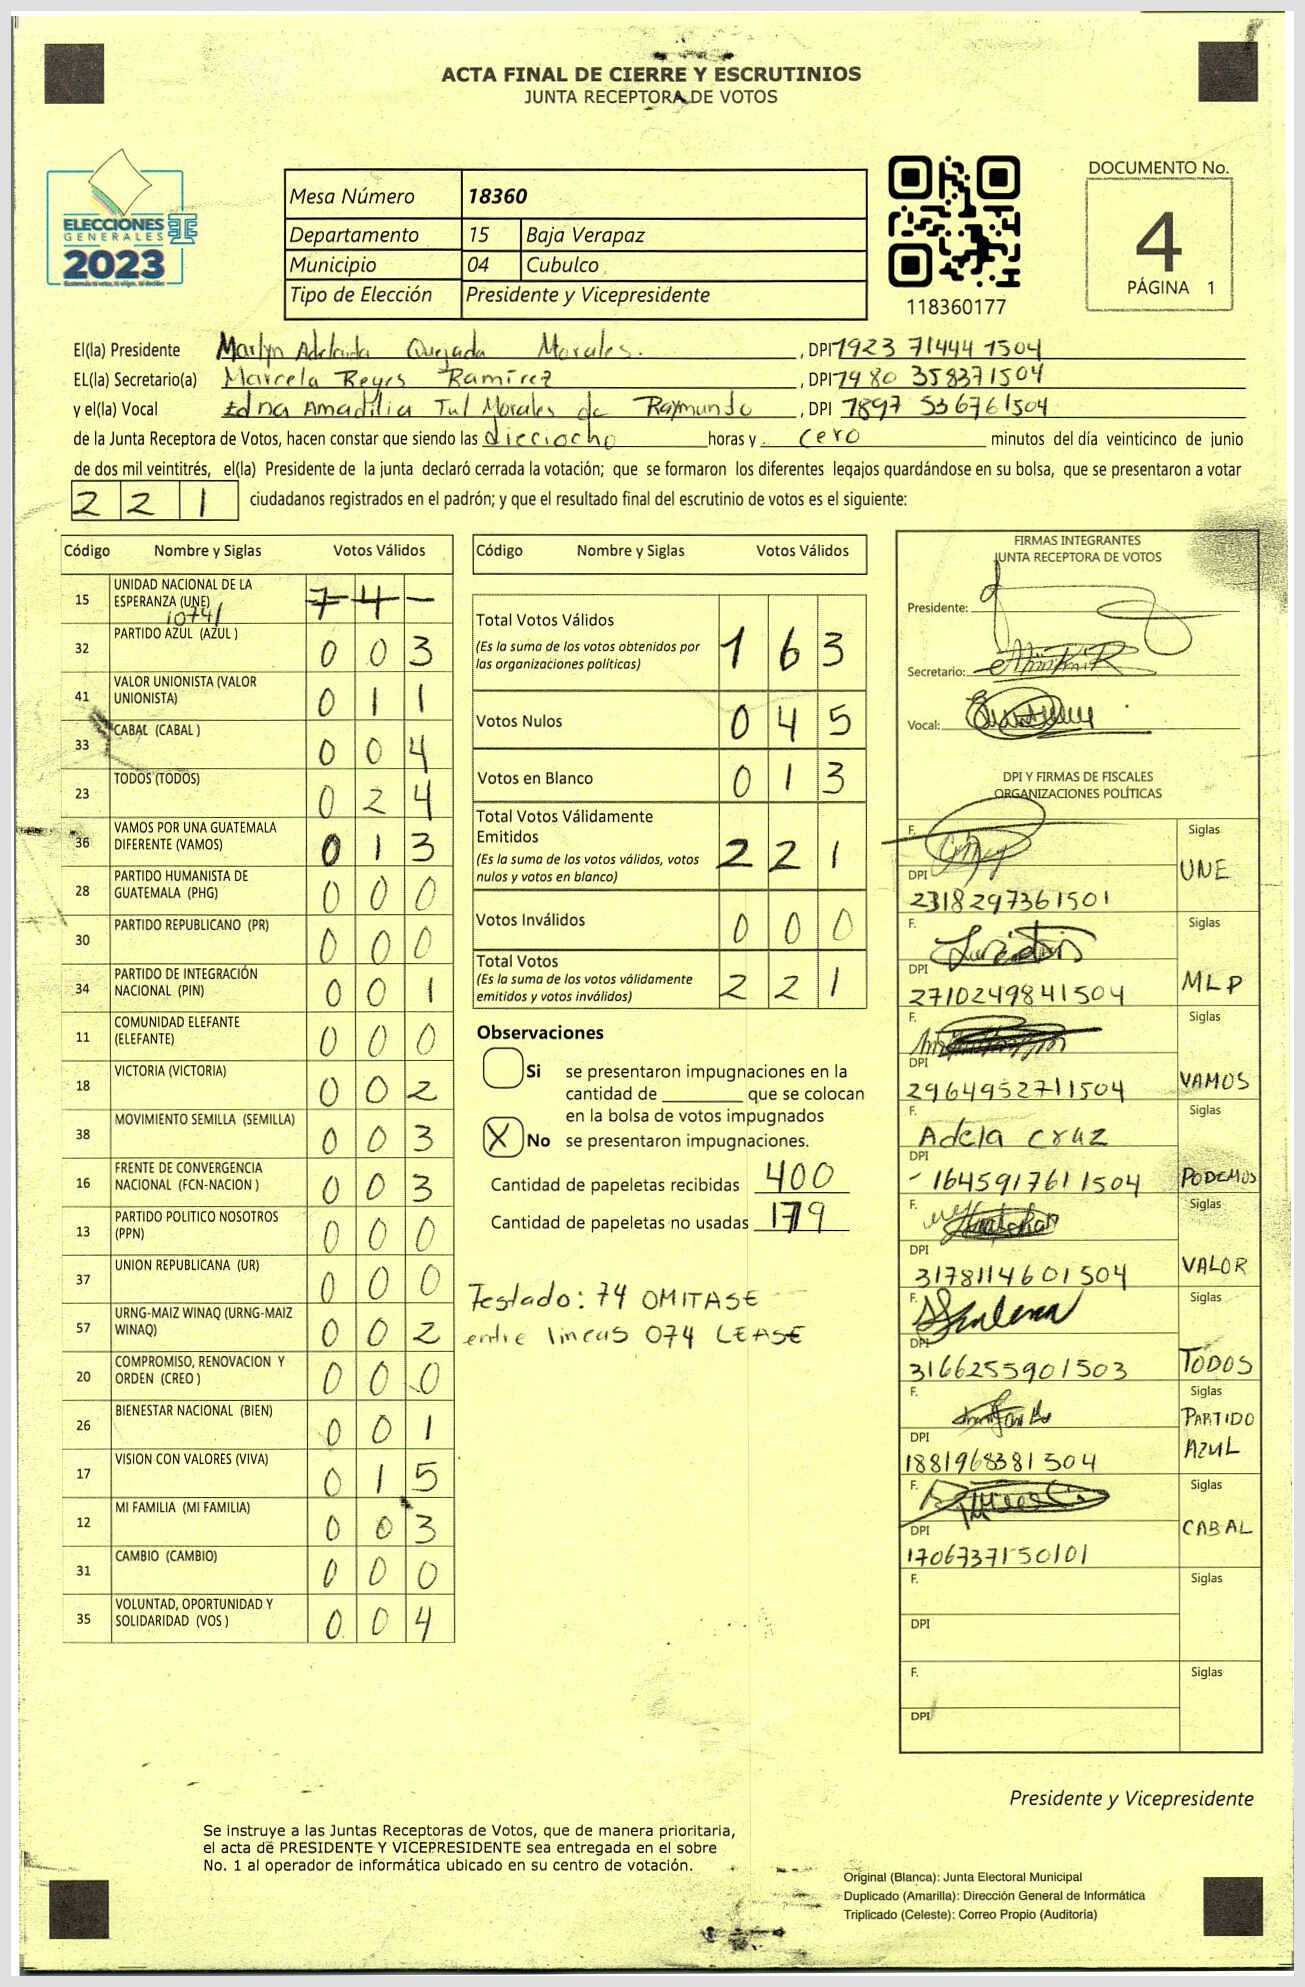 ACTA FINAL DE CIERRE Y ESCRUTINIOS
JUNTA RECEPTORA DE VOTOS
ELECCIONES
GENERALES
2023
Mesa Número 18360
Departamento 15 Baja Verapaz
Municipio 04 Cubulco
Tipo de Elección Presidente y Vicepresidente
118360177
DOCUMENTO No.
4
PÁGINA 1
El(la) Presidente Marlyn Adelaida Quejada Morales. , DPI 1923 71444 1504
EL(la) Secretario(a) Marcela Reyes Ramírez , DPI 1980 35837 1504
y el(la) Vocal Edna Amadilia Tul Morales de Raymundo , DPI 1897 53676 1504
de la Junta Receptora de Votos, hacen constar que siendo las dieciocho horas y cero minutos del día veinticinco de junio
de dos mil veintitrés, el(la) Presidente de la junta declaró cerrada la votación; que se formaron los diferentes legajos quardándose en su bolsa, que se presentaron a votar
221 ciudadanos registrados en el padrón; y que el resultado final del escrutinio de votos es el siguiente:
Código Nombre y Siglas Votos Válidos
15 UNIDAD NACIONAL DE LA ESPERANZA (UNE) 74- /074/
32 PARTIDO AZUL (AZUL ) 003
41 VALOR UNIONISTA (VALOR UNIONISTA) 011
33 CABAL (CABAL ) 004
23 TODOS (TODOS) 024
36 VAMOS POR UNA GUATEMALA DIFERENTE (VAMOS) 013
28 PARTIDO HUMANISTA DE GUATEMALA (PHG) 000
30 PARTIDO REPUBLICANO (PR) 000
34 PARTIDO DE INTEGRACIÓN NACIONAL (PIN) 001
11 COMUNIDAD ELEFANTE (ELEFANTE) 000
18 VICTORIA (VICTORIA) 002
38 MOVIMIENTO SEMILLA (SEMILLA) 003
16 FRENTE DE CONVERGENCIA NACIONAL (FCN-NACION ) 003
13 PARTIDO POLITICO NOSOTROS (PPN) 000
37 UNION REPUBLICANA (UR) 000
57 URNG-MAIZ WINAQ (URNG-MAIZ WINAQ) 002
20 COMPROMISO, RENOVACION Y ORDEN (CREO ) 000
26 BIENESTAR NACIONAL (BIEN) 001
17 VISION CON VALORES (VIVA) 015
12 MI FAMILIA (MI FAMILIA) 003
31 CAMBIO (CAMBIO) 000
35 VOLUNTAD, OPORTUNIDAD Y SOLIDARIDAD (VOS ) 004
Código Nombre y Siglas Votos Válidos
Total Votos Válidos 163
(Es la suma de los votos obtenidos por
las organizaciones políticas)
Votos Nulos 045
Votos en Blanco 013
Total Votos Válidamente
Emitidos 221
(Es la suma de los votos válidos, votos
nulos y votos en blanco)
Votos Inválidos 000
Total Votos 221
(Es la suma de los votos válidamente
emitidos y votos inválidos)
Observaciones
Si se presentaron impugnaciones en la
cantidad de ________ que se colocan
en la bolsa de votos impugnados
X No se presentaron impugnaciones.
Cantidad de papeletas recibidas 400
Cantidad de papeletas no usadas 179
Testado: 74 OMITASE
entre lineas 074 LEASE
FIRMAS INTEGRANTES
JUNTA RECEPTORA DE VOTOS
Presidente:
Secretario:
Vocal:
DPI Y FIRMAS DE FISCALES
ORGANIZACIONES POLÍTICAS
F. Siglas
DPI 2318297361501 UNE
F. Siglas
DPI 2710249841504 MLP
F. Siglas
DPI 2964952711504 VAMOS
F. Adela Cruz
DPI 1645917611504 PODEMOS
F. Siglas
DPI 3178114601504 VALOR
F. Siglas
DPI 3166255901503 TODOS
F. Siglas
DPI 1881968381504 PARTIDO AZUL
F. Siglas
DPI 1706737150101 CABAL
F. Siglas
DPI
F. Siglas
DPI
Presidente y Vicepresidente
Se instruye a las Juntas Receptoras de Votos, que de manera prioritaria,
el acta de PRESIDENTE Y VICEPRESIDENTE sea entregada en el sobre
No. 1 al operador de informática ubicado en su centro de votación.
Original (Blanca): Junta Electoral Municipal
Duplicado (Amarilla): Dirección General de Informática
Triplicado (Celeste): Correo Propio (Auditoria)